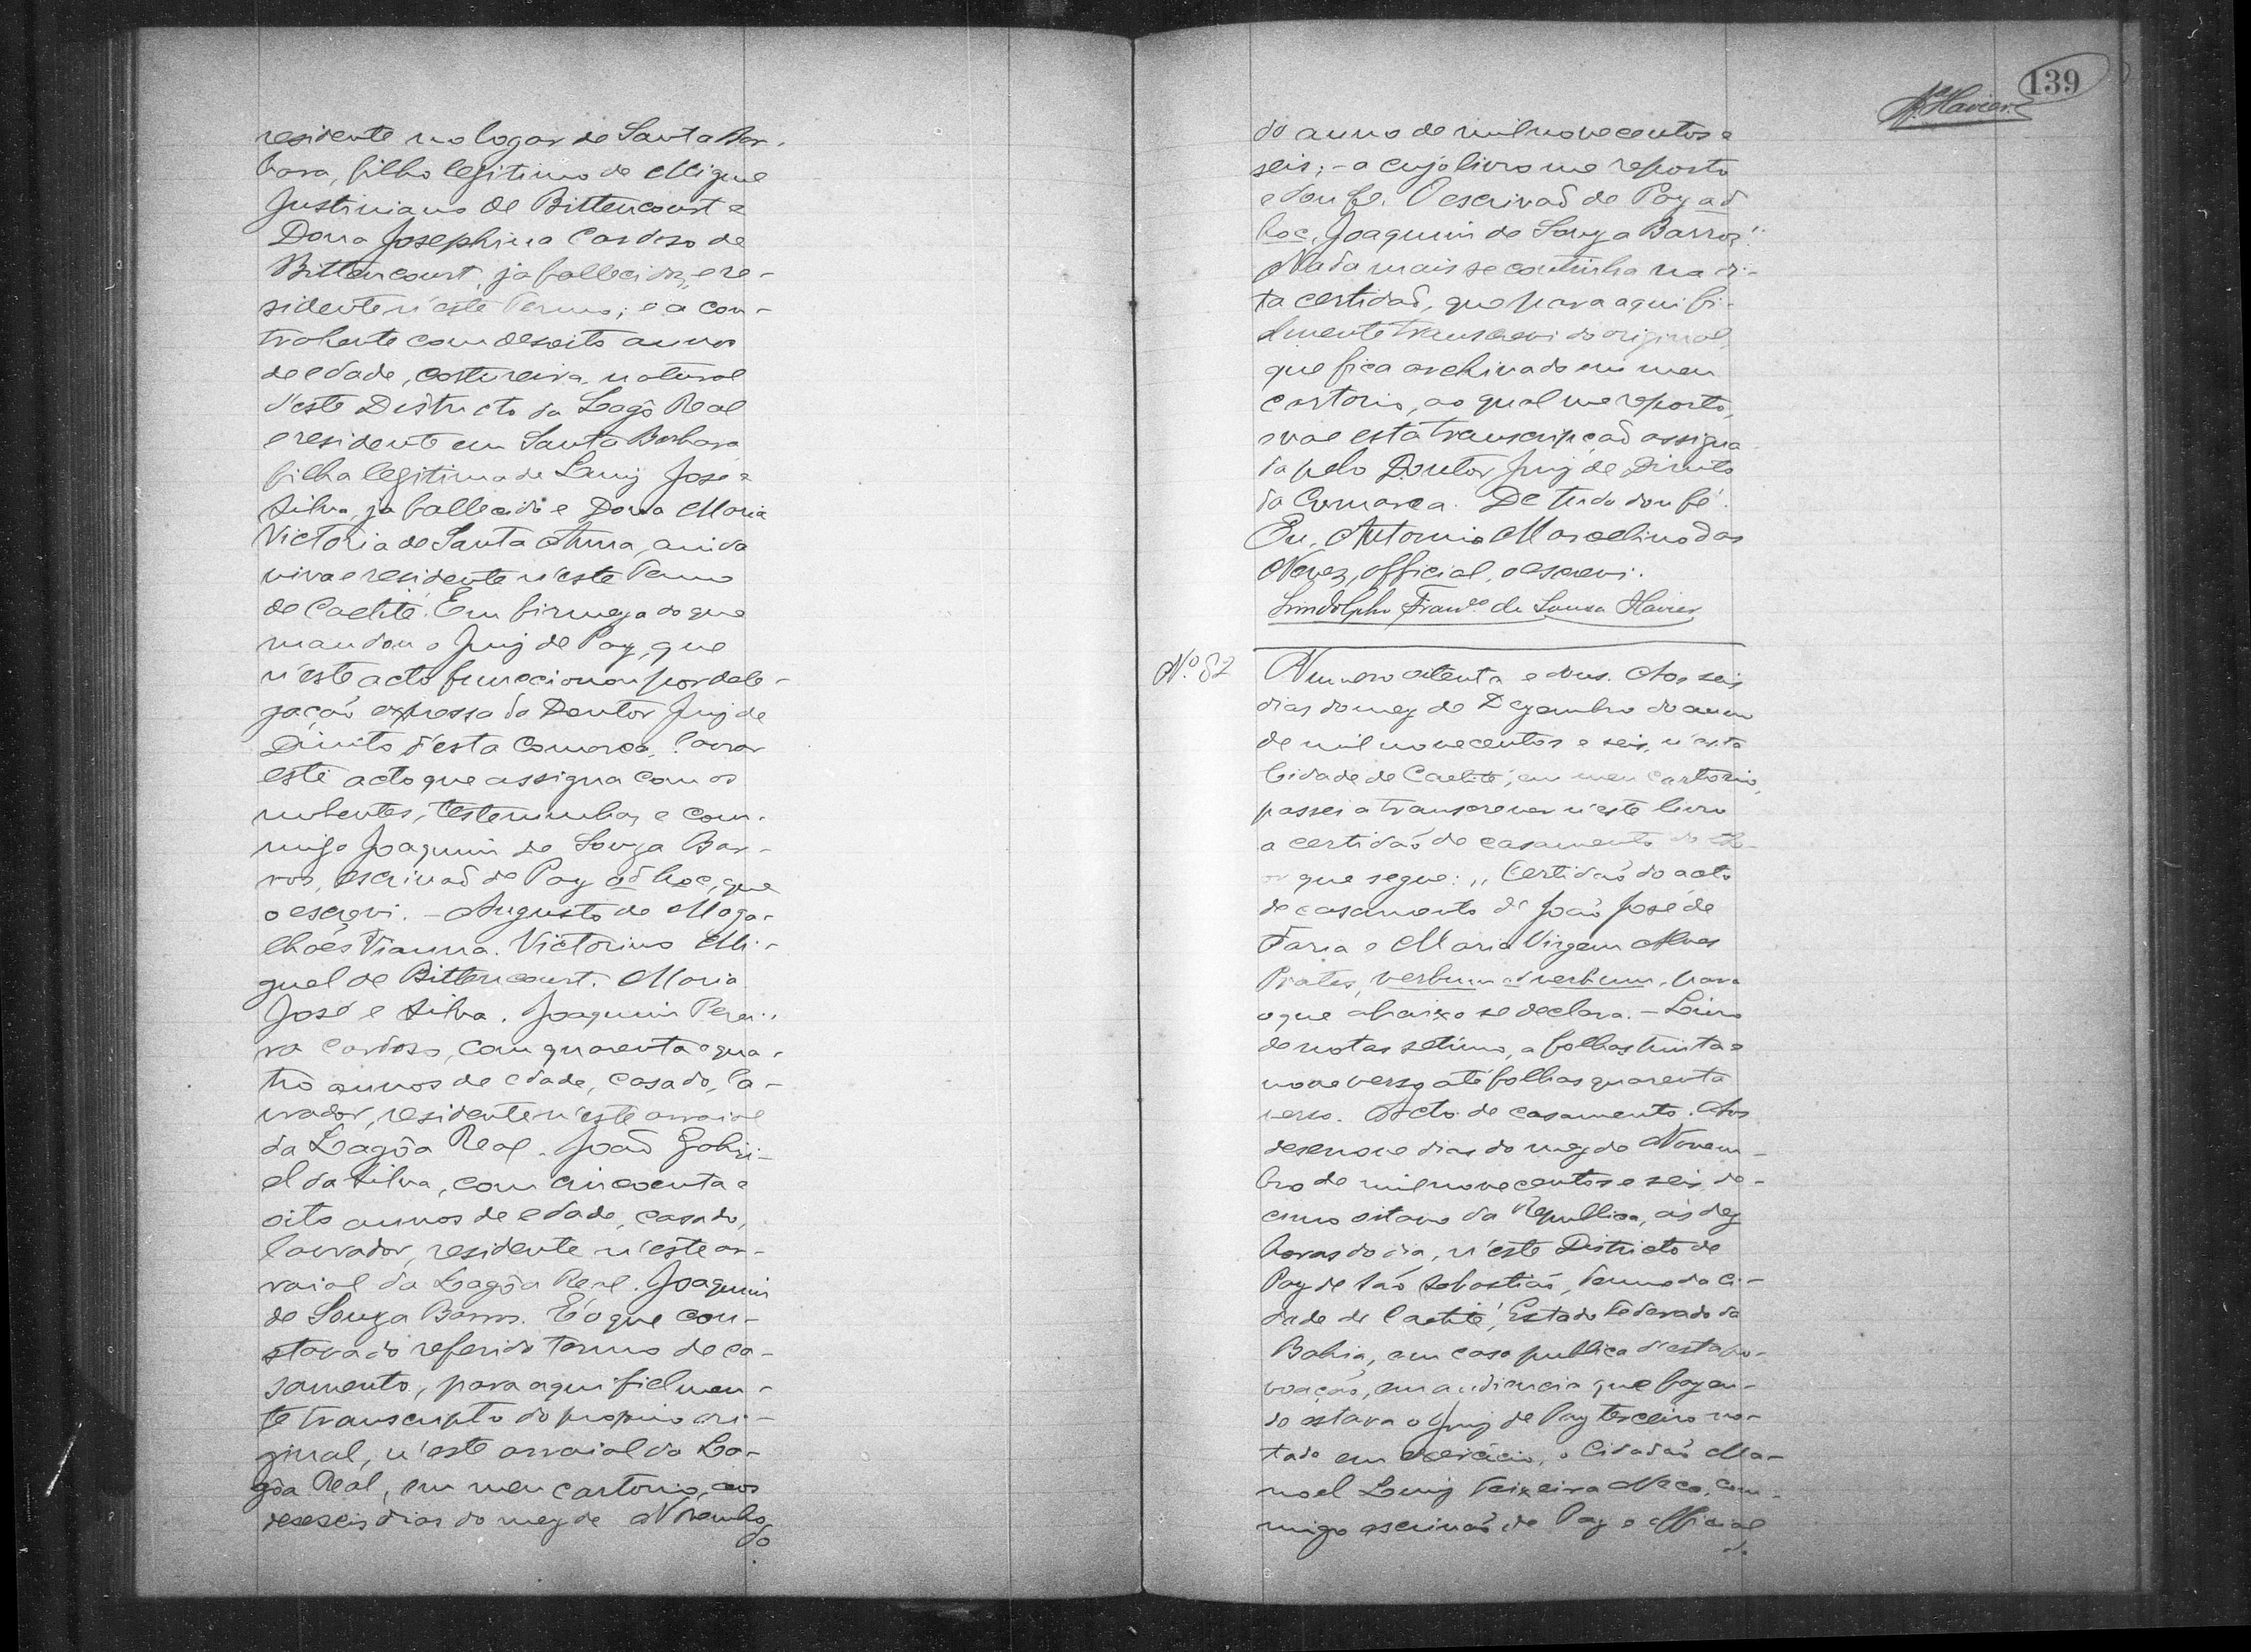 residente no logar de Santa Bar-
bara, filho legitimo de Migue
Justiniano de Bittencourt e
Dona Josephina Cardoso de
Bittencourt, ja fallecida, e re-
sidente n'este Termo; e a con-
trahente com desoito annos
de edade, costureira, natural
d'este Districto da Lagôa Real
e residente em Santa Barbara
filha legitima de Luiz José e
Silva, ja fallecido e Dona Maria
Victoria de Santa Anna, ainda
viva e residente n'este Termo
de Caetité. Em firmeza do que
mandou o Juiz de Paz, que
n'este acto funccionou por dele-
gação expressa do Doutor Juiz de
Direito d'esta Comarca, lavrar
este acto que assigna com os
nubentes, testemunhas e com-
migo Joaquim de Souza Bar-
ros, escrivaõ de Paz ad hoc, que
o escrevi. - Augusto de Maga-
lhães Vianna. Victorino Mi-
guel de Bittencourt. Maria
José e Silva. Joaquim Perei-
ra Cardoso, com quarenta e qua-
tro annos de edade, casado, la-
vrador, residente n'este arraial
da Lagôa Real. Joaõ Gabri-
el da Silva, com cincoenta e
oito annos de edade, casado,
lavrador, residente n'este ar-
raial da Lagôa Real. Joaquim
de Souza Barros. É o que con-
stava do referido termo de ca-
samento, para aqui fielmen-
te transcripto do proprio ori-
ginal, n'este arraial da La-
gôa Real, em meu cartorio, aos
deseseis dias do mez de Novembro
do
139
do anno de mil novecentos e
seis; - a cujo livro me reporto
e dou fé. O escrivaõ de Paz ad
hoc, Joaquim de Souza Barros"
Nada mais se continha na di-
ta certidaõ, que para aqui fi-
elmente transcrevi do original,
que fica archivado em meu
cartorio, ao qual me reporto,
e vae esta transcripçaõ assigna
da pelo Doutor Juiz de Direito
da Comarca. De tudo dou fé.
Eu, Antonio Marcelino das
Neves, official, o escrevi.
Lindolpho Franco. de Sousa Xavier
Nº. 82 Numero oitenta e dous. Aos seis
dias do mez de Dezembro do anno
de mil novecentos e seis, n'esta
Cidade de Caetité, em meu cartorio,
passei a transcrever n'este livro
a certidaõ de casamento do the-
or que segue: ,, Certidaõ do acto
de casamento de Joaõ José de
Faria e Maria Virgem Alves
Prates, verbum ad verbum, para
o que abaixo se declara. - Livro
de notas setimo, a folhas trinta e
nove verso até folhas quarenta
verso. Acto de casamento. Aos
desenove dias do mez de Novem-
bro de mil novecentos e seis, de-
cimo oitavo da Republica, ás dez
horas do dia, n'este Districto de
Paz de Saõ Sebastiaõ, termo da Ci-
dade de Caetité, Estado Federado da
Bahia, em casa publica d'esta po-
voaçaõ, em audiencia que fazen-
do estava o Juiz de Paz terceiro vo-
tado em exercicio, o Cidadaõ Ma-
noel Luiz Teixeira Neco, com-
migo escrivaõ de Paz e official